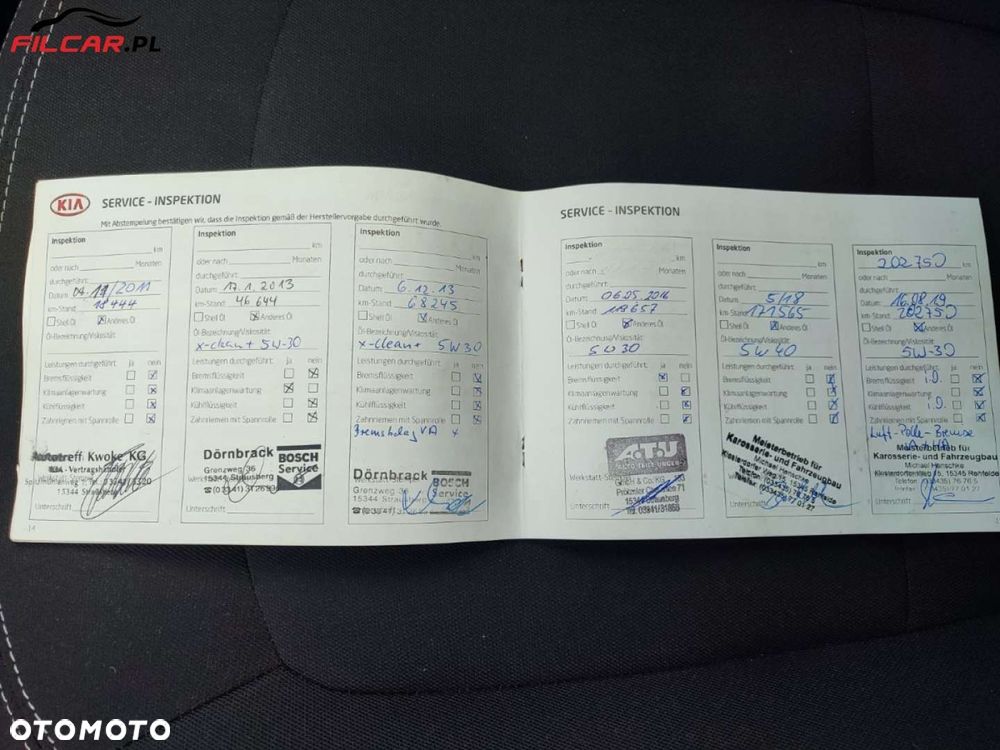 FILCAR.PL
KIA
SERVICE - INSPEKTION
Mit Abstempelung bestätigen wir, dass die Inspektion gemäß der Herstellervorgabe durchgeführt wurde.
Inspektion
km
oder nach Monaten
durchgeführt:
Datum /2011
km-Stand 18444
Shell Öl Anderes Öl
Öl-Bezeichnung/Viskosität:
x-clean+ 5W-30
Leistungen durchgeführt: ja nein
Bremsflüssigkeit
Klimaanlagenwartung
Kühlflüssigkeit
Zahnriemen mit Spannrolle
Autotreff Kwoke KG
KIA - Vertragshändler
Unterschrift
14
Inspektion
km
oder nach Monaten
durchgeführt:
Datum 17.1.2013
km-Stand 46644
Shell Öl Anderes Öl
Öl-Bezeichnung/Viskosität:
x-clean+ 5W-30
Leistungen durchgeführt: ja nein
Bremsflüssigkeit
Klimaanlagenwartung
Kühlflüssigkeit
Zahnriemen mit Spannrolle
Dörnbrack
Grenzweg 36
15344 Strausberg
BOSCH
Service
Unterschrift
Inspektion
km
oder nach Monaten
durchgeführt:
Datum 6.12.13
km-Stand 68245
Shell Öl Anderes Öl
Öl-Bezeichnung/Viskosität:
x-clean+ 5W30
Leistungen durchgeführt: ja nein
Bremsflüssigkeit
Klimaanlagenwartung
Kühlflüssigkeit
Zahnriemen mit Spannrolle
VA
Dörnbrack
Grenzweg 36
15344 Strausberg
BOSCH
Service
Unterschrift
SERVICE - INSPEKTION
Inspektion
km
oder nach Monaten
durchgeführt:
Datum 06.05.2016
km-Stand 118657
Shell Öl Anderes Öl
Öl-Bezeichnung/Viskosität:
5W30
Leistungen durchgeführt: ja nein
Bremsflüssigkeit
Klimaanlagenwartung
Kühlflüssigkeit
Zahnriemen mit Spannrolle
A.T.U
AUTO-TEILE-UNGER
GmbH & Co. KG
Prötzeler Chaussee 71
15344 Strausberg
Tel. 03341/31868
Unterschrift
Inspektion
km
oder nach Monaten
durchgeführt:
Datum 5/18
km-Stand 171565
Shell Öl Anderes Öl
Öl-Bezeichnung/Viskosität:
5W40
Leistungen durchgeführt: ja nein
Bremsflüssigkeit
Klimaanlagenwartung
Kühlflüssigkeit
Zahnriemen mit Spannrolle
Meisterbetrieb für
Karosserie- und Fahrzeugbau
Michael Henschke
Unterschrift
Inspektion
202750 km
oder nach Monaten
durchgeführt:
Datum: 16.08.19
km-Stand: 202750
Shell Öl Anderes Öl
Öl-Bezeichnung/Viskosität:
5W-30
Leistungen durchgeführt: ja nein
Bremsflüssigkeit i.O.
Klimaanlagenwartung
Kühlflüssigkeit i.O.
Zahnriemen mit Spannrolle
Luft-Polle-Bremse
Meisterbetrieb für
Karosserie- und Fahrzeugbau
Michael Henschke
Unterschrift
OTOMOTO